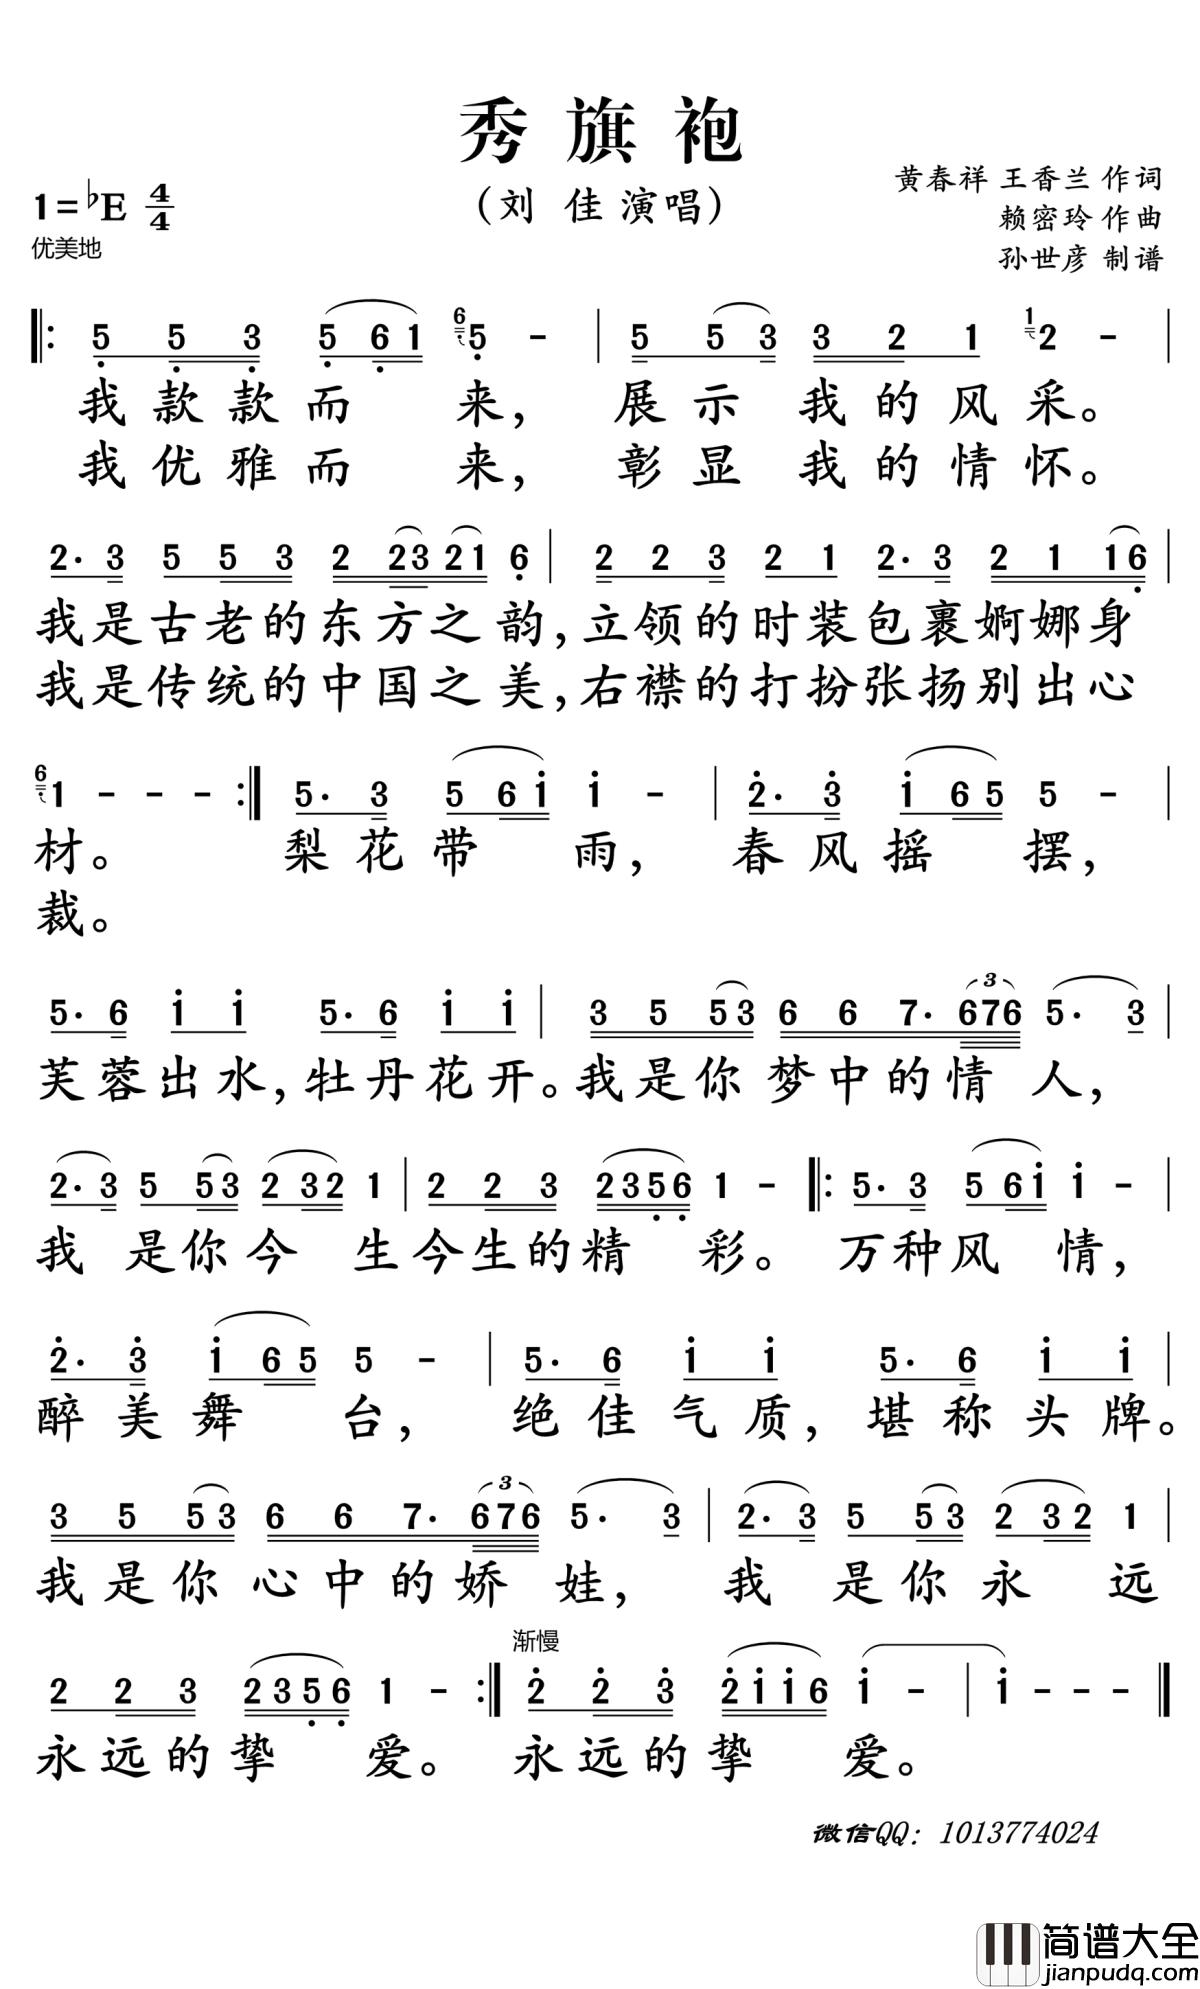 秀旗袍
(刘 佳 演唱)
黄春祥 王香兰 作词
赖密玲 作曲
孙世彦 制谱
1=♭E 4/4
优美地
‖: 5 5 3 5 6 1 6 5 - | 5 5 3 3 2 1 1 2 - |
我款款而来,展示我的风采。
我优雅而来,彰显我的情怀。
2· 3 5 5 3 2 2 3 2 1 6 | 2 2 3 2 1 2· 3 2 1 1 6 |
我是古老的东方之韵,立领的时装包裹婀娜身
我是传统的中国之美,右襟的打扮张扬别出心
6 1 - - - :‖ 5· 3 5 6 i i - | 2· 3 i 6 5 5 - |
材。 梨花带雨,春风摇摆,
裁。
5· 6 i i 5· 6 i i | 3 5 5 3 6 6 7· 3 676 5· 3 |
芙蓉出水,牡丹花开。我是你梦中的情人,
2· 3 5 5 3 2 3 2 1 | 2 2 3 2 3 5 6 1 - ‖: 5· 3 5 6 i i - |
我是你今生今生的精彩。万种风情,
2· 3 i 6 5 5 - | 5· 6 i i 5· 6 i i |
醉美舞台,绝佳气质,堪称头牌。
3 5 5 3 6 6 7· 3 676 5· 3 | 2· 3 5 5 3 2 3 2 1 |
我是你心中的娇娃,我是你永远
渐慢
2 2 3 2 3 5 6 1 - :‖ 2 2 3 2 i i 6 i - | i - - - ‖
永远的挚爱。永远的挚爱。
微信QQ: 1013774024
简谱大全
jianpudq.com